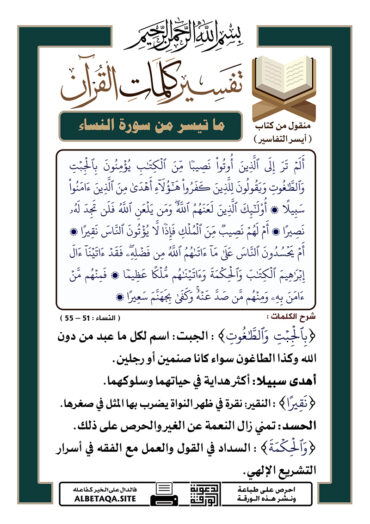 بسم الله الرحمن الرحيم
تفسير كلمات القرآن
منقول من كتاب
( أيسر التفاسير )
ما تيسر من سورة النساء
أَلَمْ تَرَ إِلَى ٱلَّذِينَ أُوتُوا۟ نَصِيبًا مِّنَ ٱلْكِتَـٰبِ يُؤْمِنُونَ بِٱلْجِبْتِ
وَٱلطَّـٰغُوتِ وَيَقُولُونَ لِلَّذِينَ كَفَرُوا۟ هَـٰٓؤُلَآءِ أَهْدَىٰ مِنَ ٱلَّذِينَ ءَامَنُوا۟
سَبِيلًا ۞ أُو۟لَـٰٓئِكَ ٱلَّذِينَ لَعَنَهُمُ ٱللَّهُ ۖ وَمَن يَلْعَنِ ٱللَّهُ فَلَن تَجِدَ لَهُۥ
نَصِيرًا ۞ أَمْ لَهُمْ نَصِيبٌ مِّنَ ٱلْمُلْكِ فَإِذًا لَّا يُؤْتُونَ ٱلنَّاسَ نَقِيرًا ۞
أَمْ يَحْسُدُونَ ٱلنَّاسَ عَلَىٰ مَآ ءَاتَىٰهُمُ ٱللَّهُ مِن فَضْلِهِۦ ۖ فَقَدْ ءَاتَيْنَآ ءَالَ
إِبْرَٰهِيمَ ٱلْكِتَـٰبَ وَٱلْحِكْمَةَ وَءَاتَيْنَـٰهُم مُّلْكًا عَظِيمًا ۞ فَمِنْهُم مَّنْ
ءَامَنَ بِهِۦ وَمِنْهُم مَّن صَدَّ عَنْهُ ۚ وَكَفَىٰ بِجَهَنَّمَ سَعِيرًا ۞
شرح الكلمات : ( النساء : 51 – 55 )
﴿بِٱلْجِبْتِ وَٱلطَّـٰغُوتِ﴾ : الجبت: اسم لكل ما عبد من دون
الله وكذا الطاغون سواء كانا صنمين أو رجلين.
أهدى سبيلا: أكثر هداية في حياتهما وسلوكهما.
﴿نَقِيرًا﴾ : النقير: نقرة في ظهر النواة يضرب بها المثل في صغرها.
الحسد: تمني زال النعمة عن الغير والحرص على ذلك.
﴿وَٱلْحِكْمَةَ﴾ : السداد في القول والعمل مع الفقه في أسرار
التشريع الإلهي.
احرص على طباعة
ونشر هذه الورقة
الدعوية الورقة
فالدال على الخير كفاعله
ALBETAQA.SITE